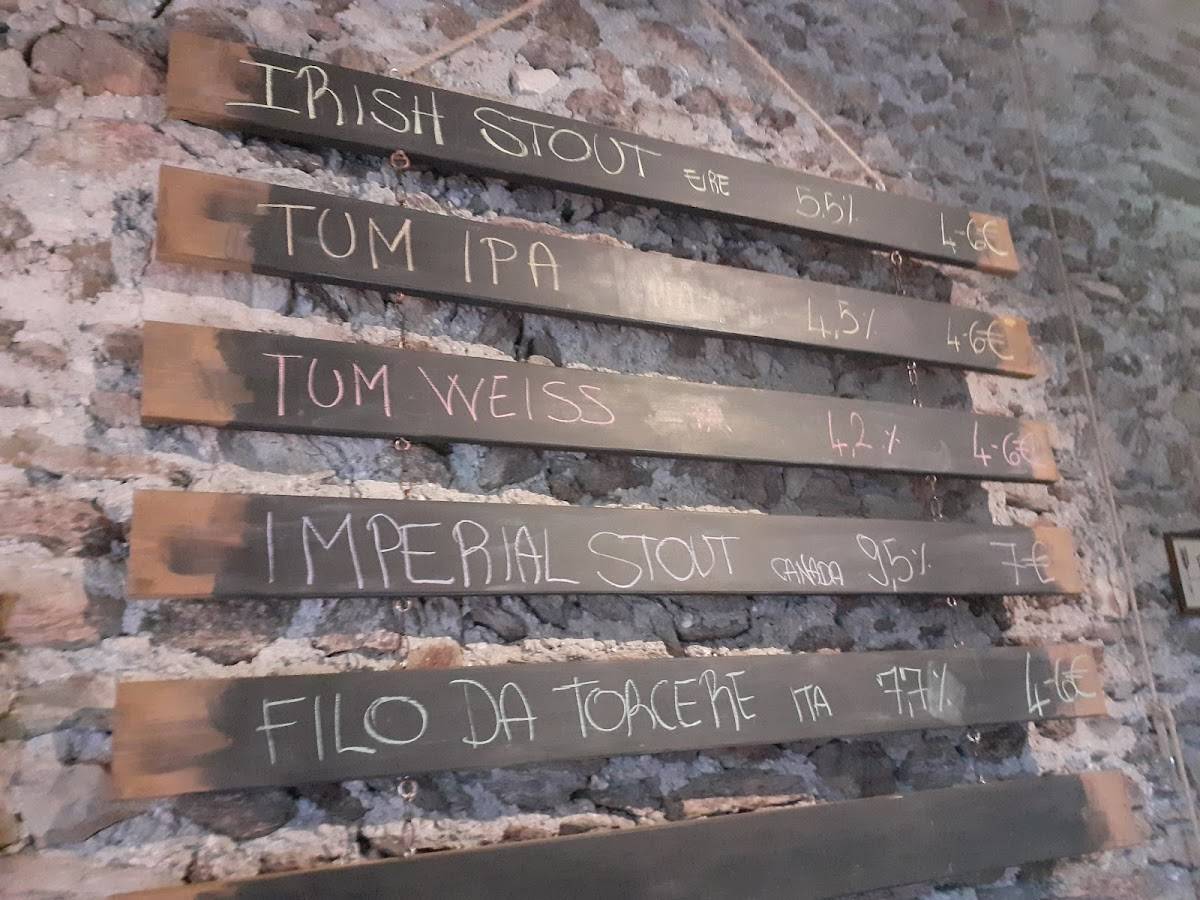 IRISH STOUT EIRE 5.5% 4-6€
TUM IPA 4,5% 4-6€
TUM WEISS 4,2% 4-6€
IMPERIAL STOUT CANADA 9,5% 7€
FILO DA TORCERE ITA 7.7% 4-6€